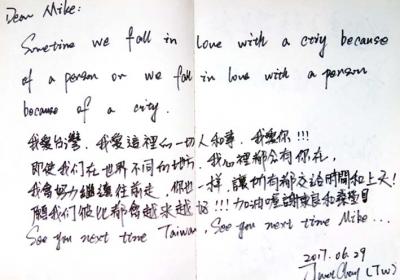 Dear Mike:
Sometime we fall in love with a city because
of a person or we fall in love with a person
because of a city.
我愛台灣,我愛這裡的一切人和事,我愛你!!!
即使我们在世界不同的地方,我心裡都会有你在,
我會努力繼續往前走,你也一樣,讓所有都交給時間和上天!
願我们彼此都會越來越好!!!加油喔谢東良和桑瑩目
See you next time Taiwan, See you next time Mike...
2017.06.29
(TW)